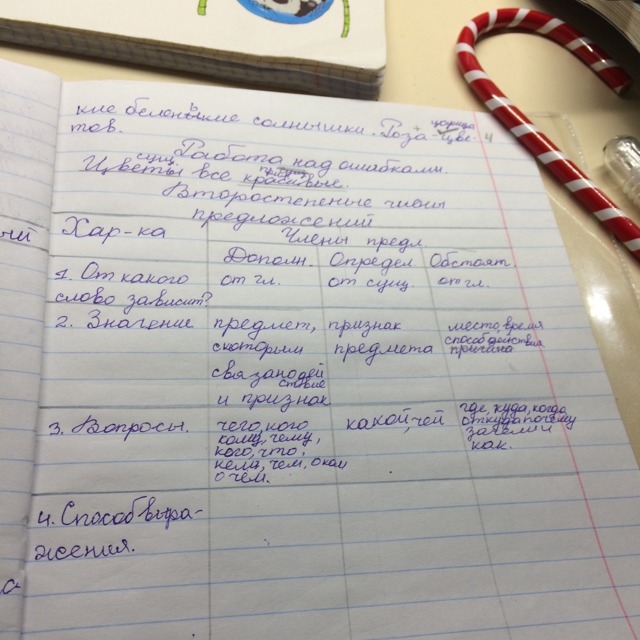 кие беленькие солнышки. Роза - царица цве-
тов.
Работа над ошибками.
сущ. прилаг.
Цветы все красивые.
Второстепенные члены
предложений
Хар-ка Члены предл.
Дополн. Определ. Обстоят.
1. От какого от гл. от сущ. от гл.
слово зависит?
2. Значение предмет, признак место, время
скоторым предмета способ действия
связано дей причина
ствие
и признак
3. Вопросы. чего, кого какой, чей где, куда, когда
кому, чему, откуда почему
кого, что, зачем и
кем, чем, о ком как.
о чём.
4. Способ выра-
жения.
ый